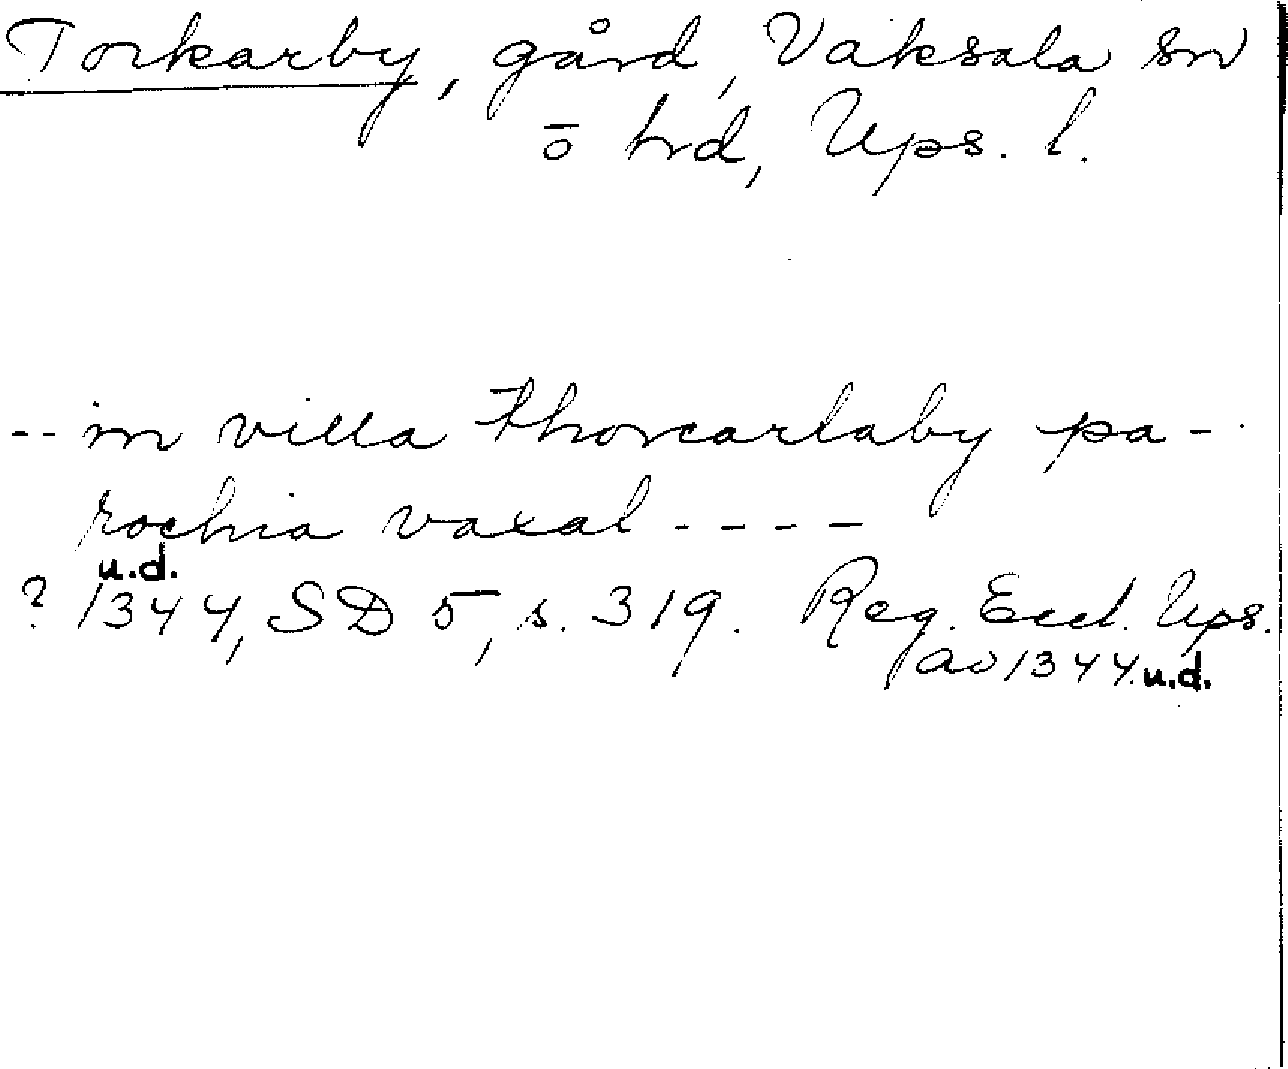 Torkarby, gård, Vaksala sn
ō hrd, Ups. l.
-- in villa thorcarlaby pa-
rochia vaxal ----
u.d.
? 1344, SD 5, s. 319. Reg. Eccl. Ups.
av 1344. u.d.